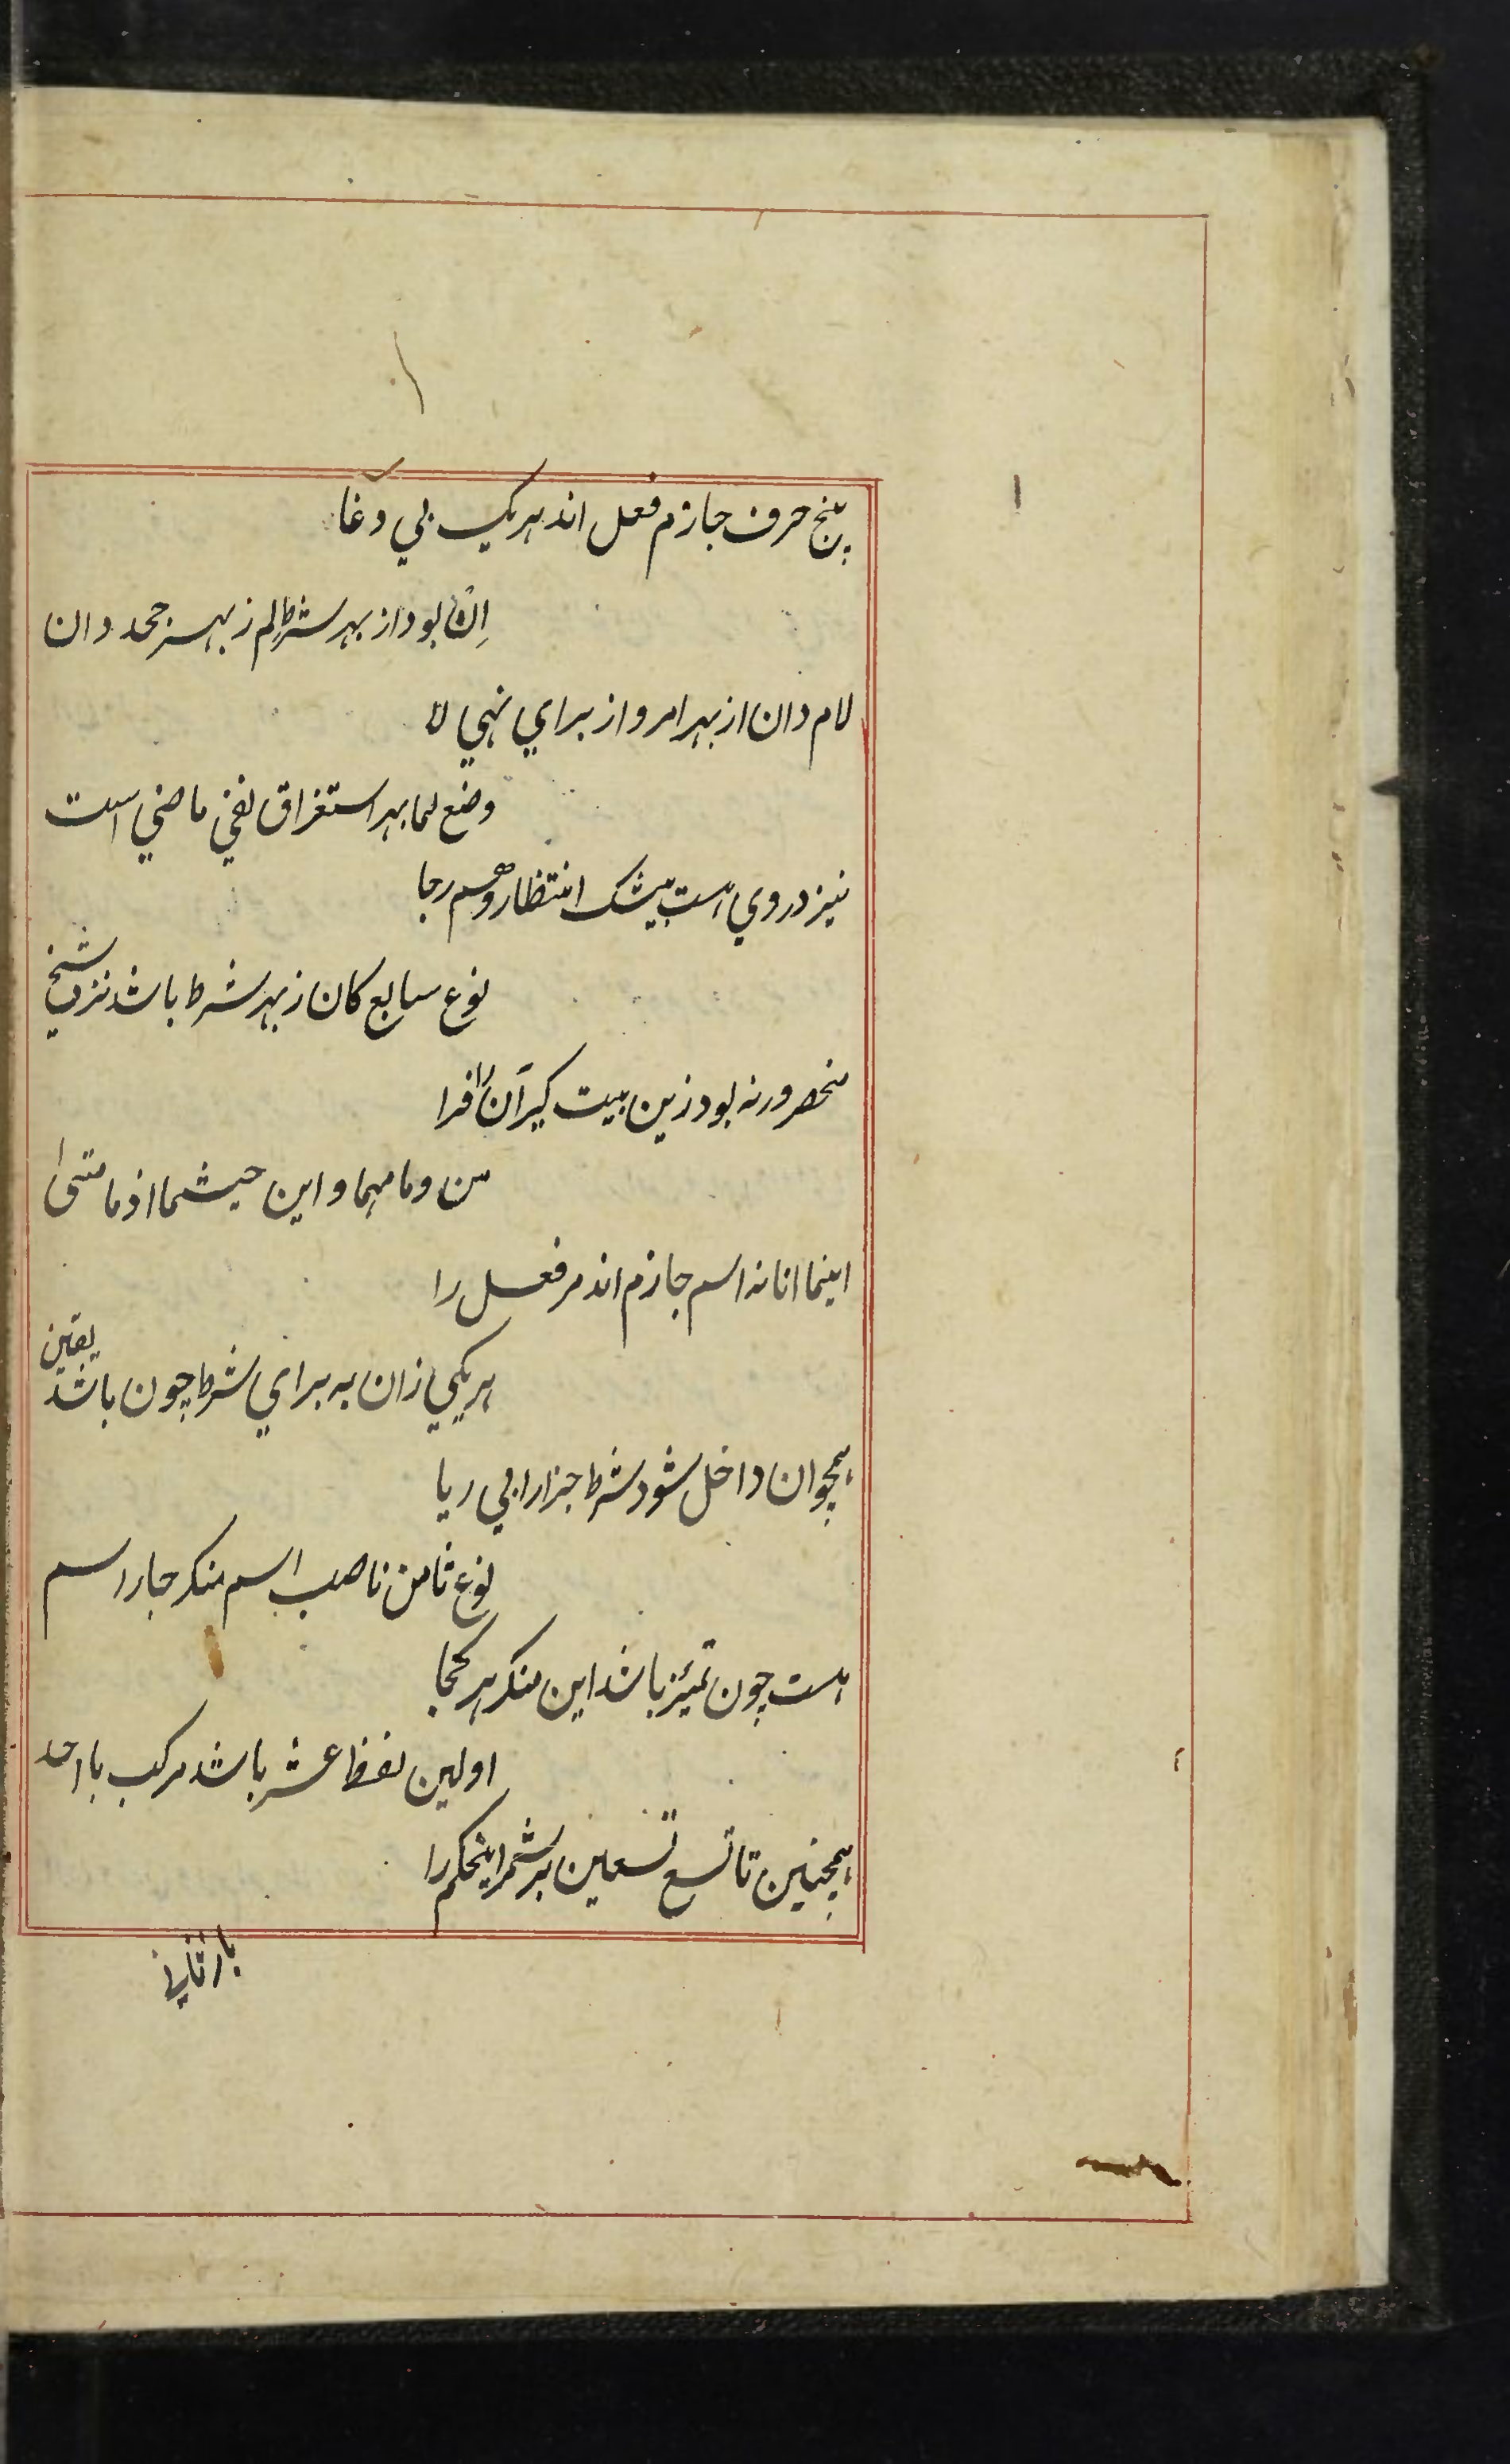 پنج حرف جازم فعل اند هریک بی دغا
اِن بود از بهر شرط لم ز بهر جحد دان
لام دان از بهر امر و از برای نهی لا
وضع لما بهر استغراق نفی ماضی است
نیز در وی هست بیشک انتظار و هم رجا
نوع سابع کان ز بهر شرط باشد نزد شیخ
منحصر ورنه بود زین بیت گیر آن را فرا
من و ما مهما و این حیثما اذما متی
اینما انا نه اسم جازم اند مر فعل را
هر یکی زان به برای شرط چون باشد یقین
همچو ان داخل شود شرط جزا را بی ریا
نوع ثامن ناصب اسم منکر چار اسم
هست چون تمیز باشد این منکر هر کجا
اولین لفظ عشر باشد مرکب با احد
همچنین تا تسع تسعین بر شمر اینحکم را
باز ثانی